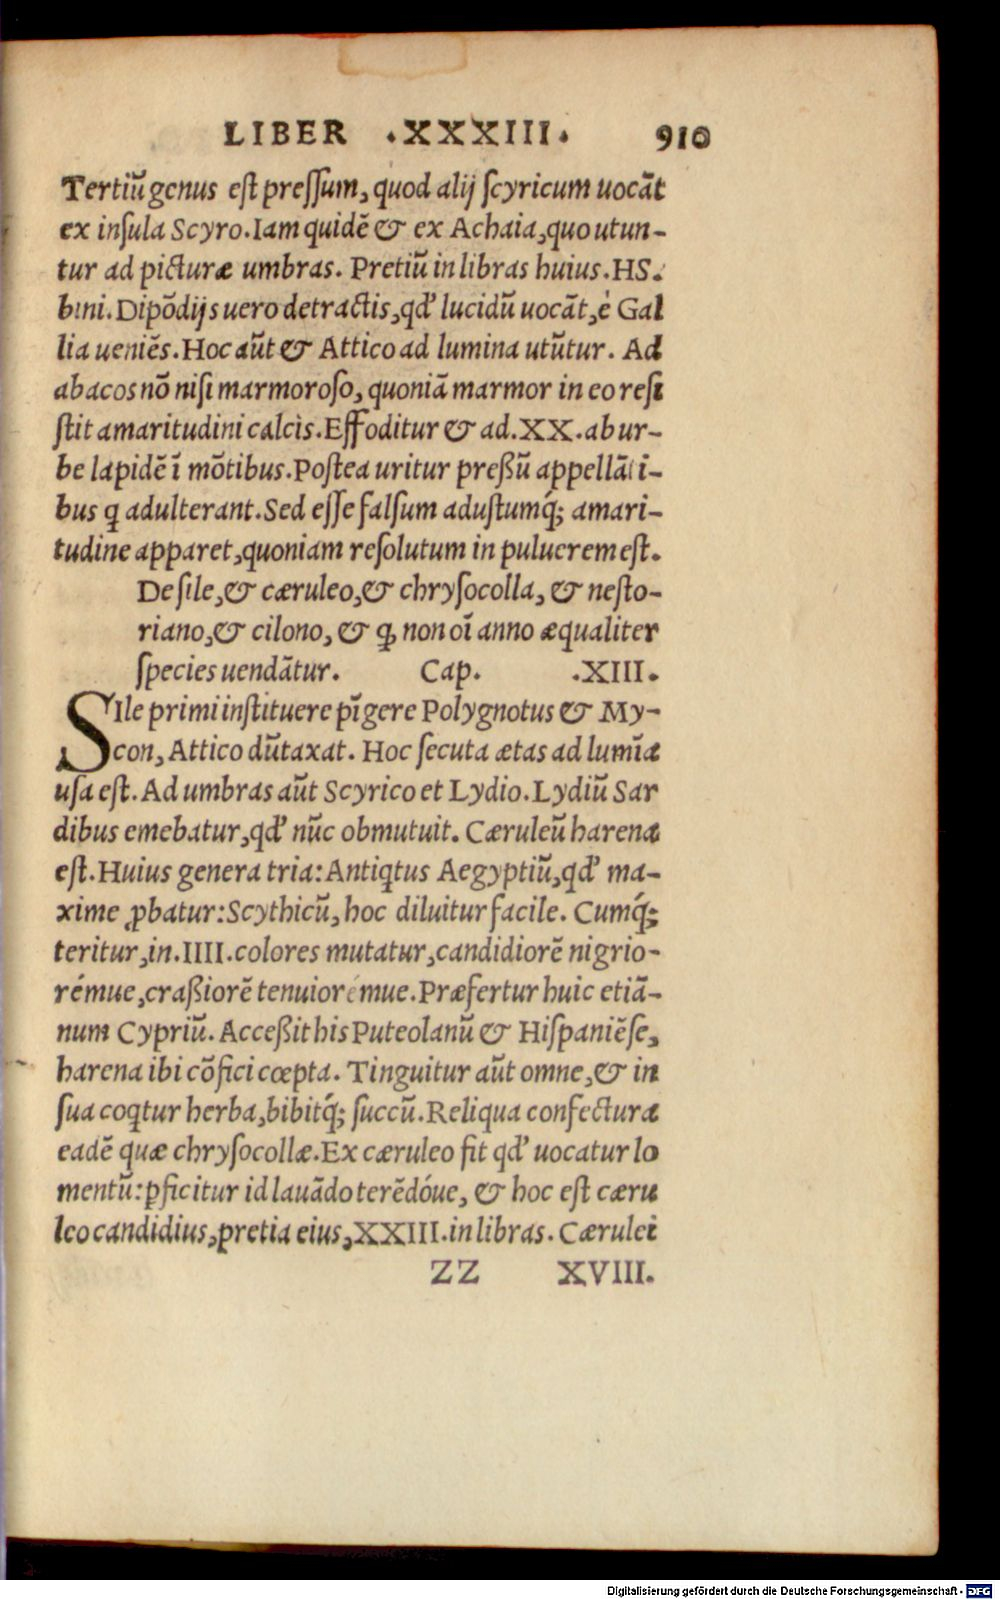 LIBER .XXXIII. 910
Tertiũ genus est pressum, quod alij scyricum uocãt
ex insula Scyro. Iam quidẽ & ex Achaia, quo utun-
tur ad picturæ umbras. Pretiũ in libras huius. HS.
bini. Dipõdijs uero detractis, qd' lucidũ uocãt, è Gal
lia ueniẽs. Hoc aũt & Attico ad lumina utũtur. Ad
abacos nõ nisi marmoroso, quoniã marmor in eo resi
stit amaritudini calcis. Effoditur & ad. XX. ab ur-
be lapidẽ ĩ mõtibus. Postea uritur preßũ appellãti-
bus q adulterant. Sed esse falsum adustumq́; amari-
tudine apparet, quoniam resolutum in puluerem est.
De sile, & cæruleo, & chrysocolla, & nesto-
riano, & cilono, & q, non oĩ anno æqualiter
species uendãtur. Cap. .XIII.
SIle primi instituere pĩgere Polygnotus & My-
con, Attico dũtaxat. Hoc secuta ætas ad lumĩa
usa est. Ad umbras aũt Scyrico et Lydio. Lydiũ Sar
dibus emebatur, qd' nũc obmutuit. Cæruleũ harena
est. Huius genera tria: Antiqtus Aegyptiũ, qd' ma-
xime ꝓbatur: Scythicũ, hoc diluitur facile. Cumq́;
teritur, in. IIII. colores mutatur, candidiorẽ nigrio-
rémue, craßiorẽ tenuiorémue. Præfertur huic etiã-
num Cypriũ. Acceßit his Puteolanũ & Hispaniẽse,
harena ibi cõfici cœpta. Tinguitur aũt omne, & in
sua coqtur herba, bibitq́; succũ. Reliqua confectura
eadẽ quæ chrysocollæ. Ex cæruleo fit qd' uocatur lo
mentũ: ꝑficitur id lauãdo terẽdóue, & hoc est cæru
leo candidius, pretia eius, XXIII. in libras. Cærulei
ZZ XVIII.
Digitalisierung gefördert durch die Deutsche Forschungsgemeinschaft - DFG